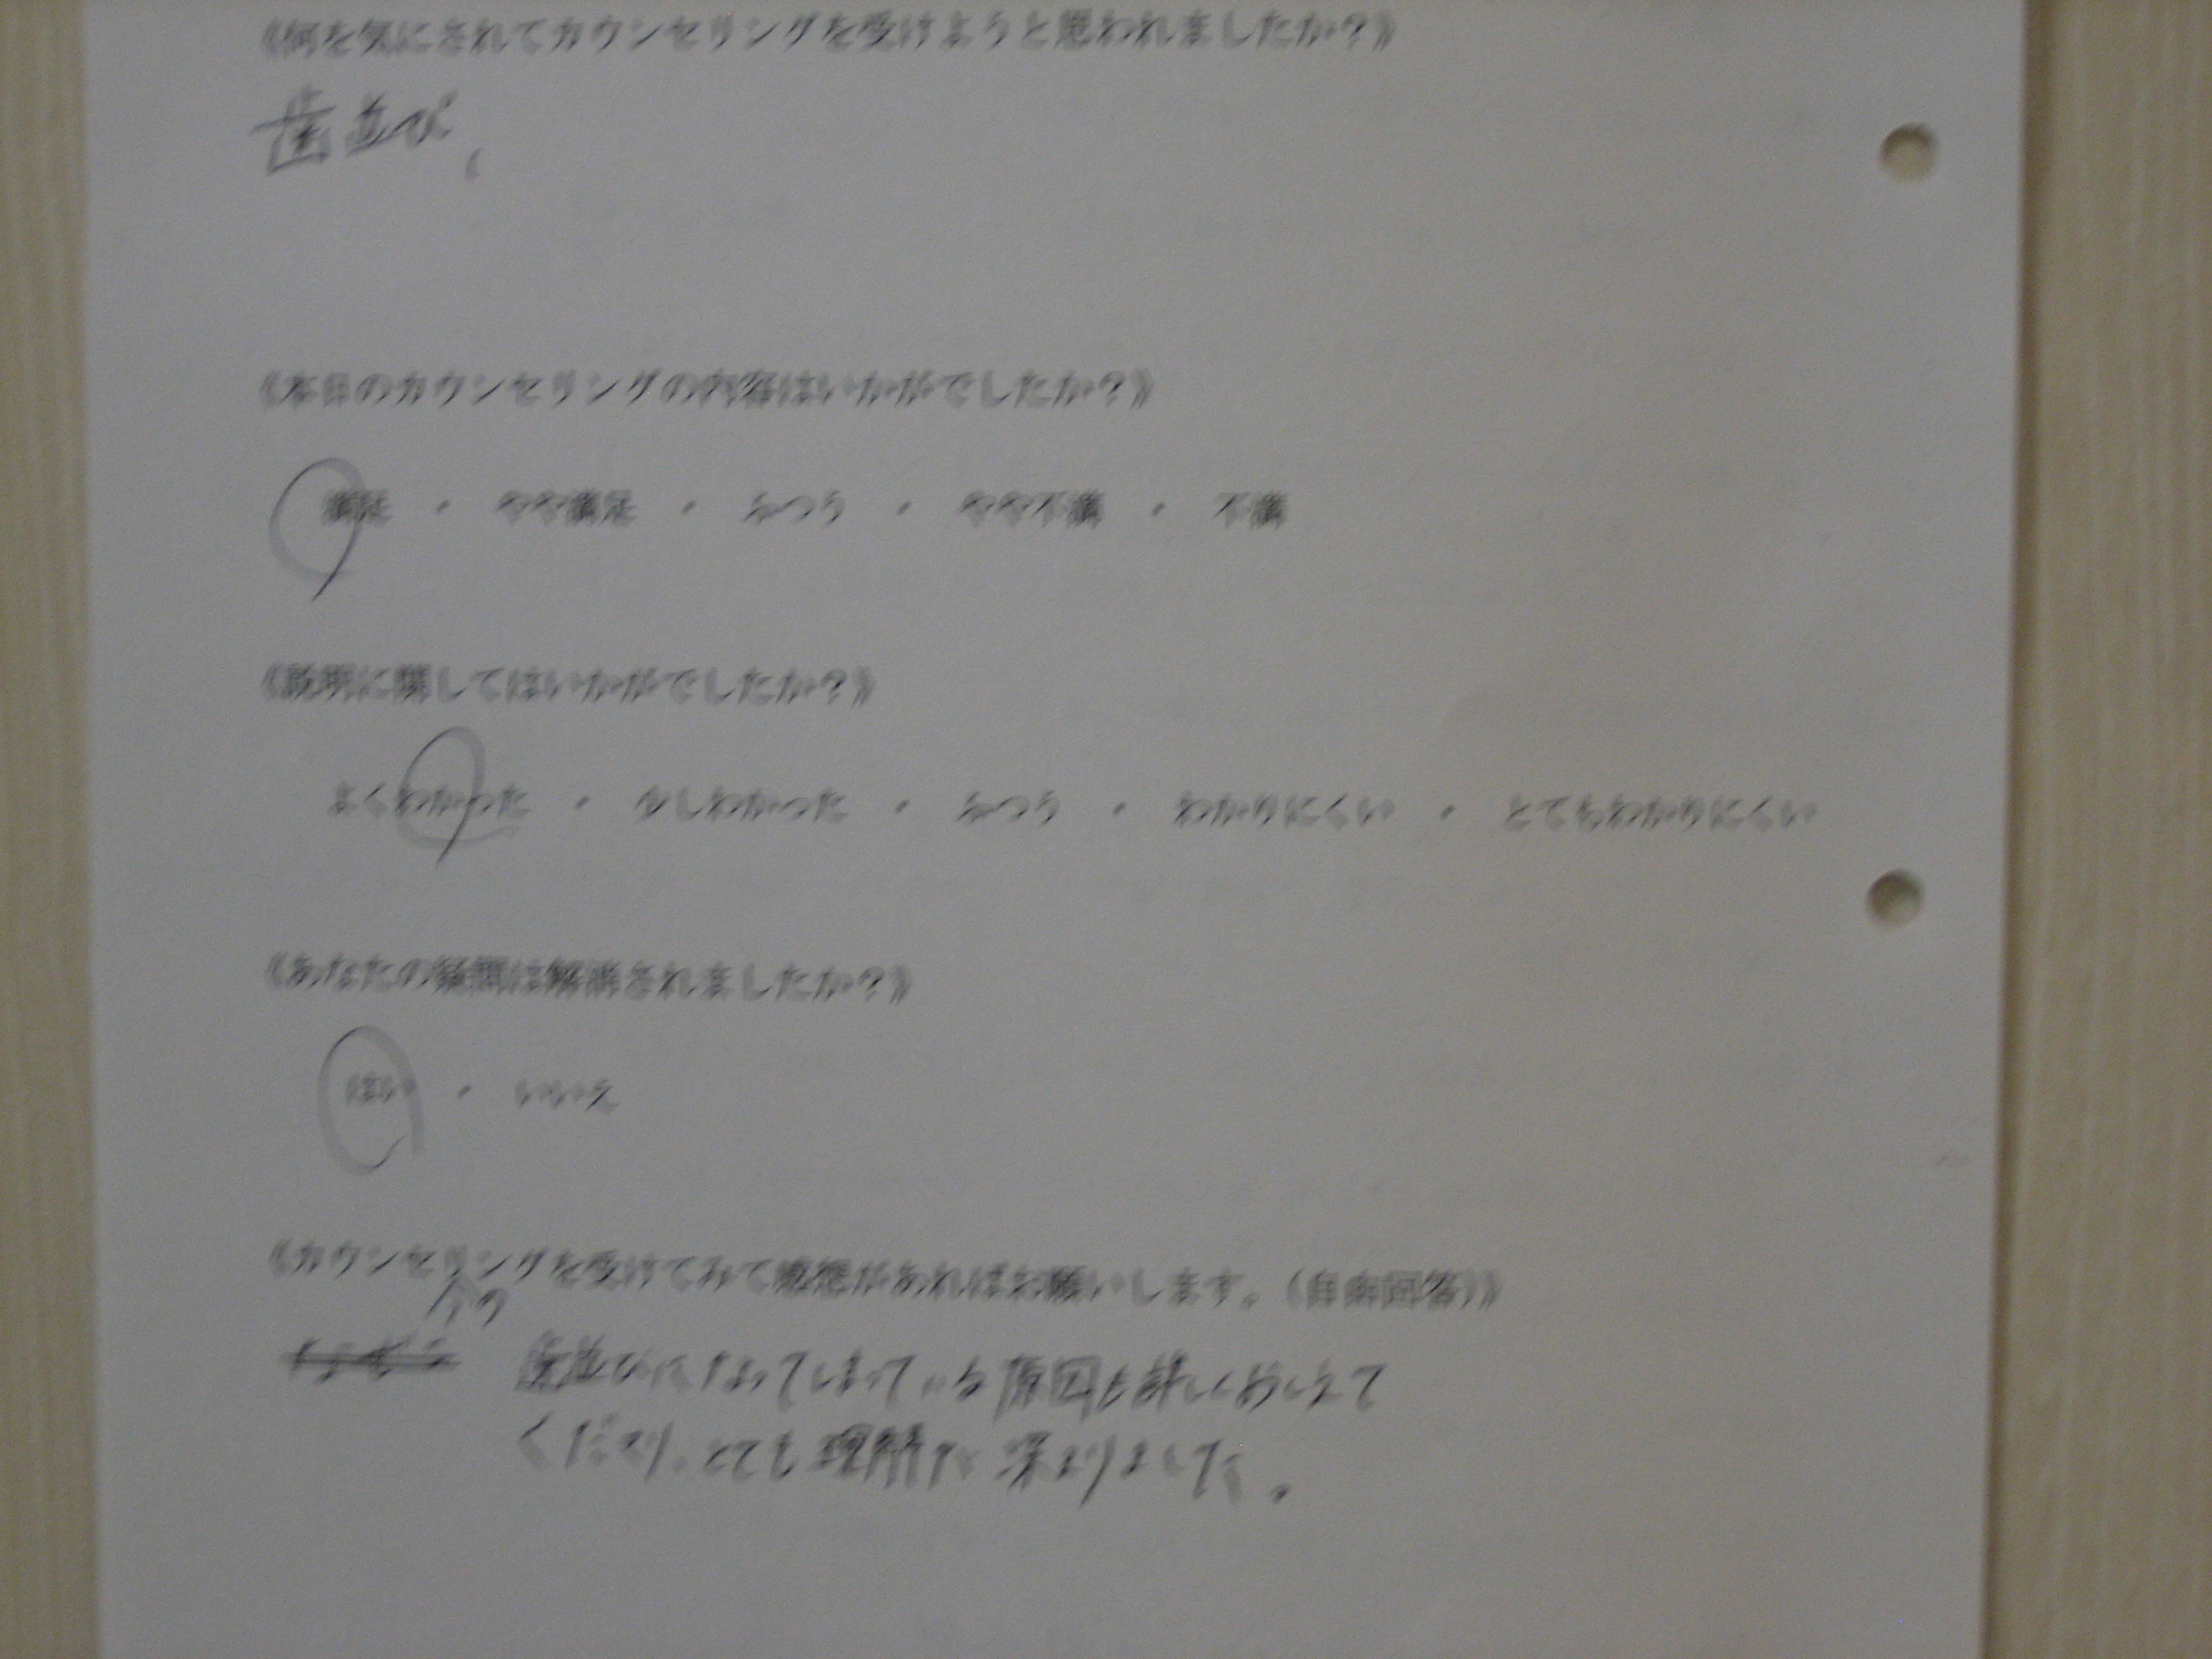 《何を気にされてカウンセリングを受けようと思われましたか?》
歯並び、
《本日のカウンセリングの内容はいかがでしたか?》
満足 ・ やや満足 ・ ふつう ・ やや不満 ・ 不満
《説明に関してはいかがでしたか?》
よくわかった ・ 少しわかった ・ ふつう ・ わかりにくい ・ とてもわかりにくい
《あなたの疑問は解消されましたか?》
はい ・ いいえ
《カウンセリングを受けてみて感想があればお願いします。(自由回答)》
今の
歯並びになってしまっている原因も詳しくおしえて
くださり、とても理解が深まりました。